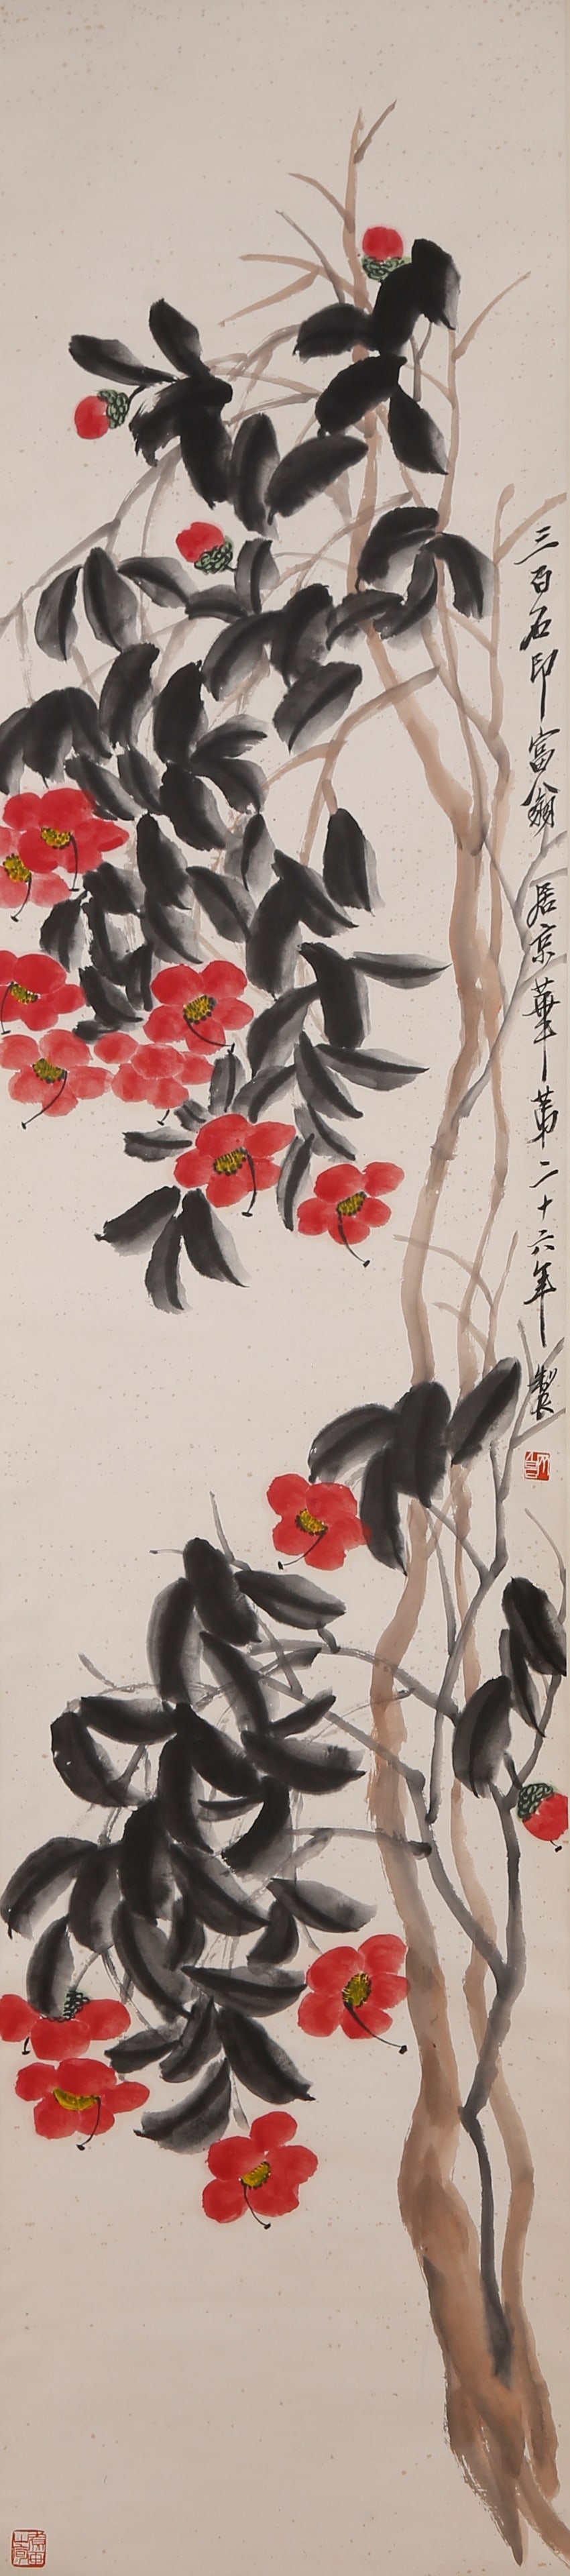 三百石印富翁居京華第二十六年製